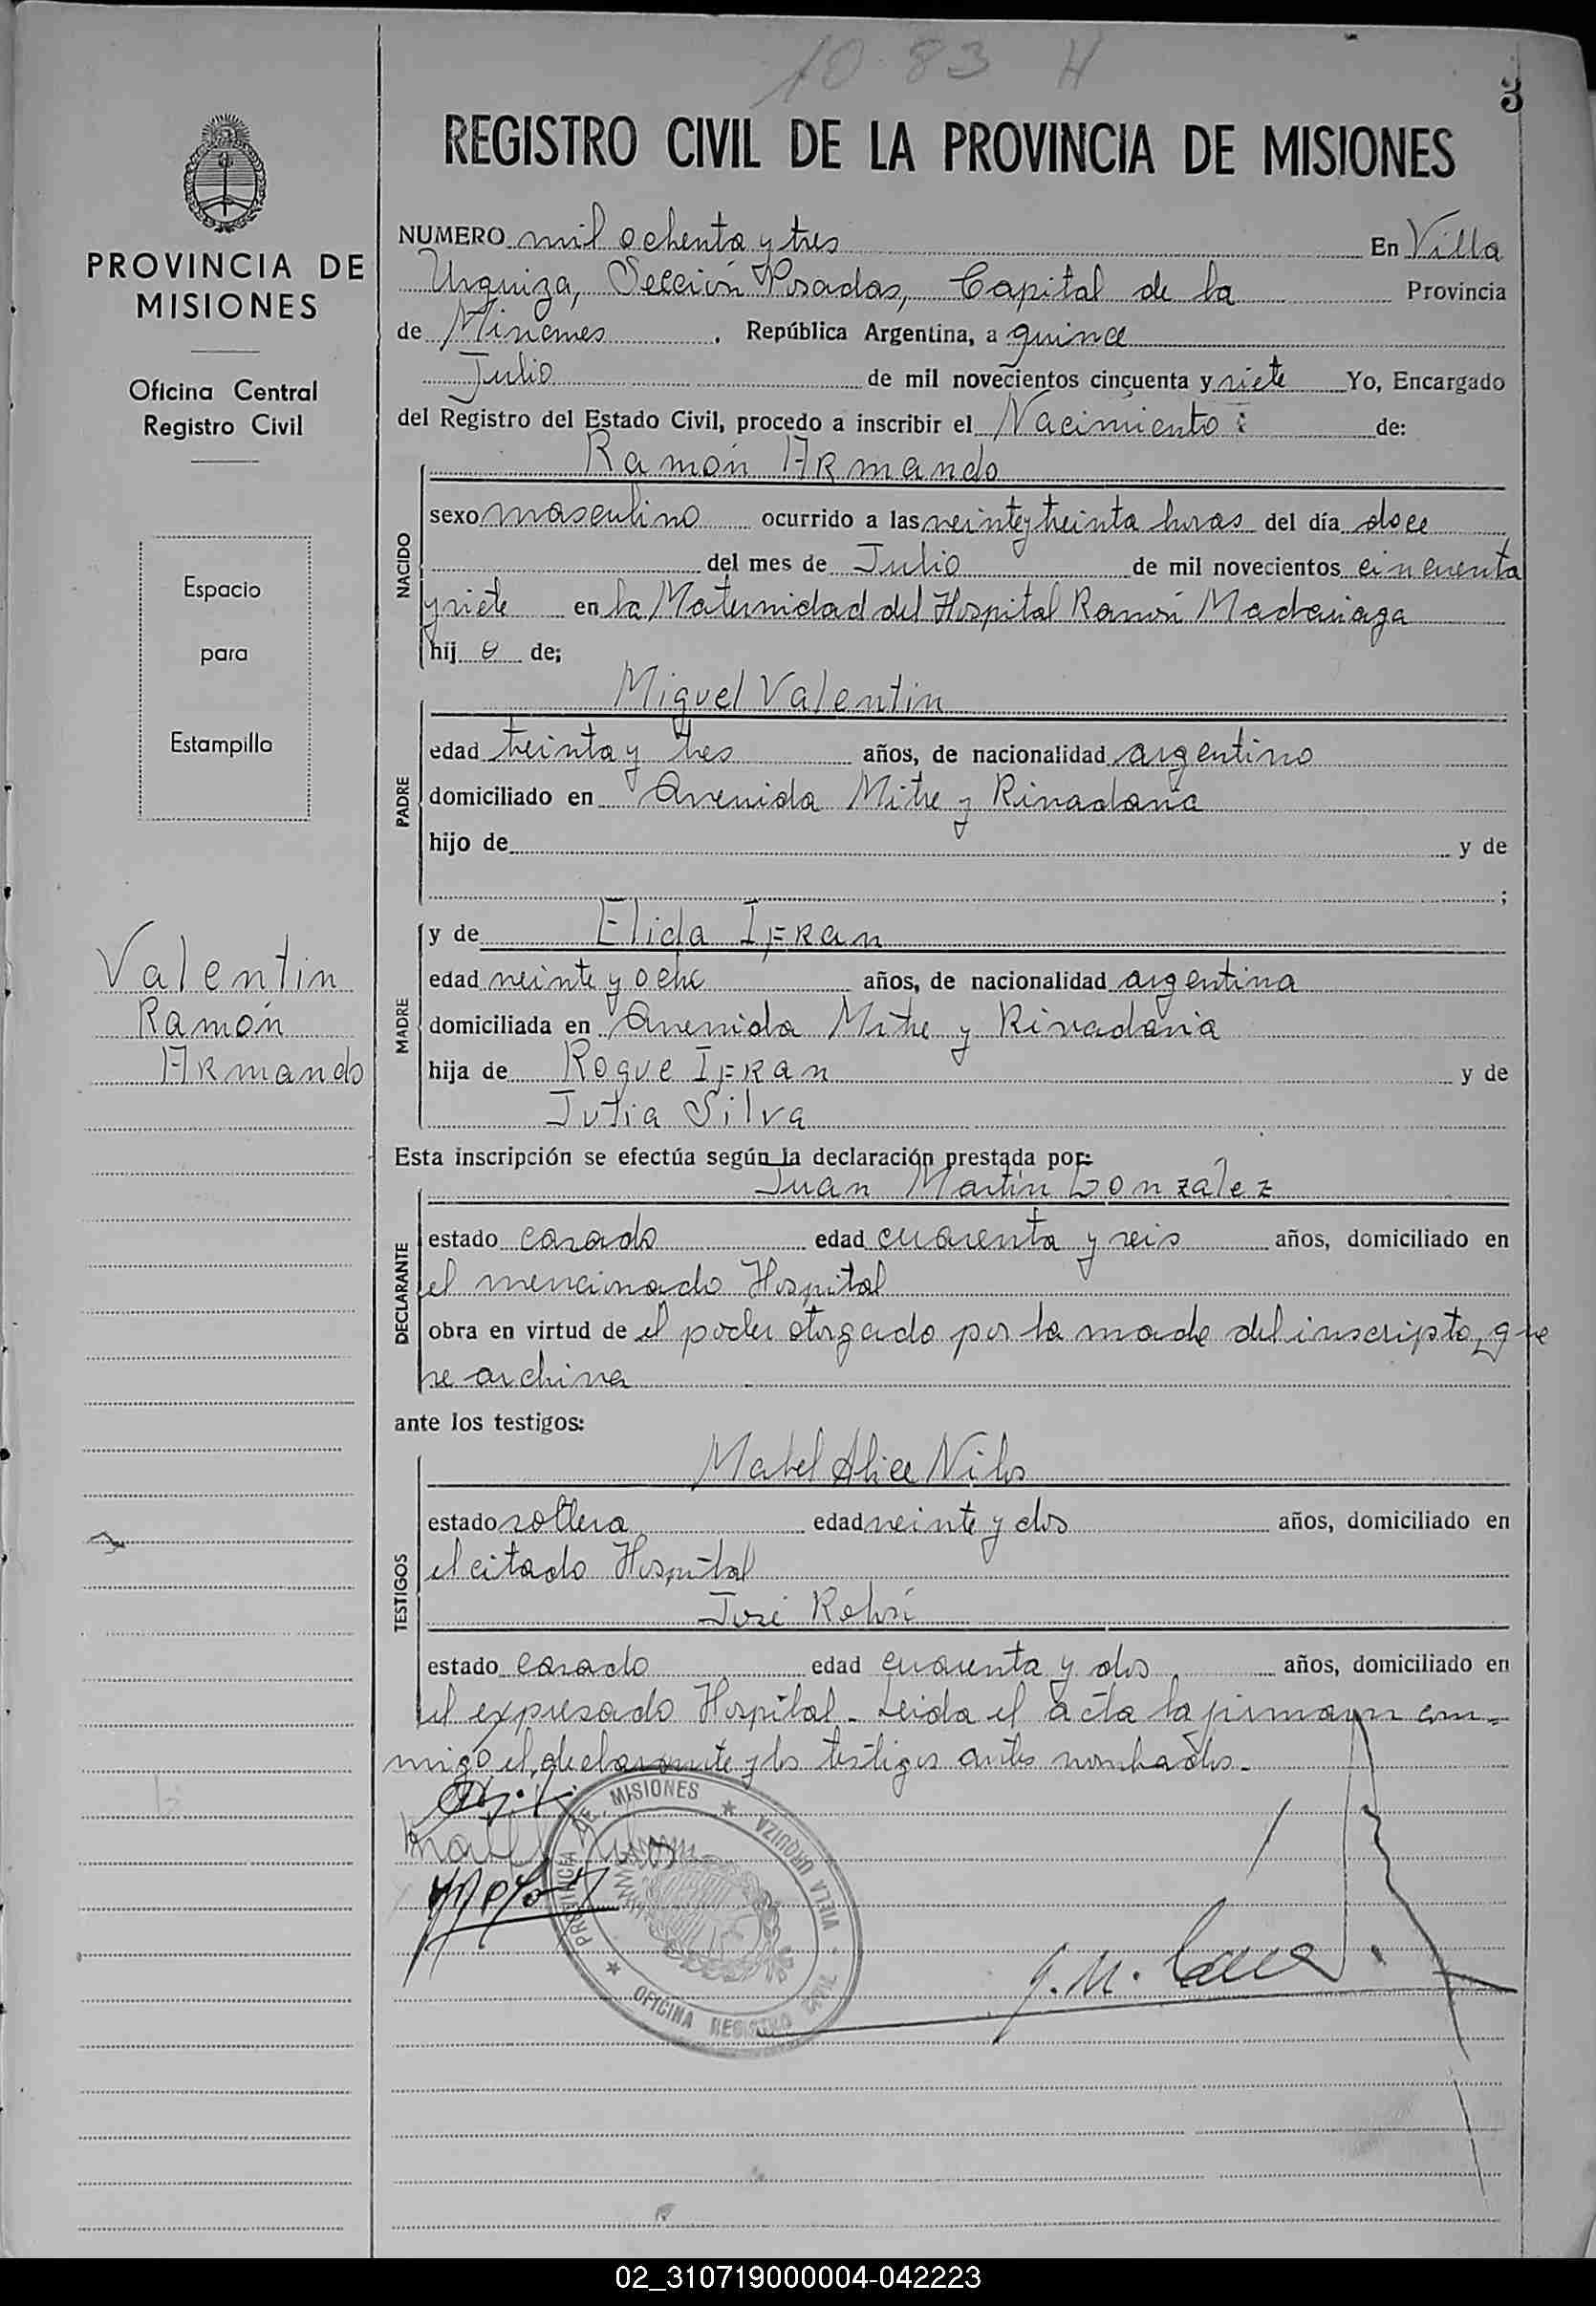 10 83 H
3
REGISTRO CIVIL DE LA PROVINCIA DE MISIONES
PROVINCIA DE
MISIONES
Oficina Central
Registro Civil
Espacio
para
Estampilla
Valentin
Ramón
Armando
NUMERO mil ochenta y tres En Villa
Urquiza, Sección Posadas, Capital de la Provincia
de Misiones. República Argentina, a quince
Julio de mil novecientos cincuenta y siete Yo, Encargado
del Registro del Estado Civil, procedo a inscribir el Nacimiento: de:
NACIDO
Ramón Armando
sexo masculino ocurrido a las veinte y treinta horas del día doce
del mes de Julio de mil novecientos cincuenta
y siete en la Maternidad del Hospital Ramón Madariaga
hij o de;
PADRE
Miguel Valentin
edad treinta y tres años, de nacionalidad argentino
domiciliado en Avenida Mitre y Rivadavia
hijo de y de
;
MADRE
y de Elida Ifran
edad veinte y ocho años, de nacionalidad argentina
domiciliada en Avenida Mitre y Rivadavia
hija de Roque Ifran y de
Julia Silva
Esta inscripción se efectúa según la declaración prestada por:
DECLARANTE
Juan Martín Gonzalez
estado casado edad cuarenta y seis años, domiciliado en
el mencionado Hospital
obra en virtud de el poder otorgado por la madre del inscripto, que
se archiva
ante los testigos:
TESTIGOS
Mabel Alice
estado soltera edad veinte y dos años, domiciliado en
el citado Hospital
José
estado casado edad cuarenta y dos años, domiciliado en
el expresado Hospital. Leida el acta la firmaron con-
migo el declarante y los testigos antes nombrados.-
PROVINCIA DE MISIONES ★ VILLA URQUIZA
★ OFICINA REGISTRO CIVIL
J. M.
02_310719000004-042223